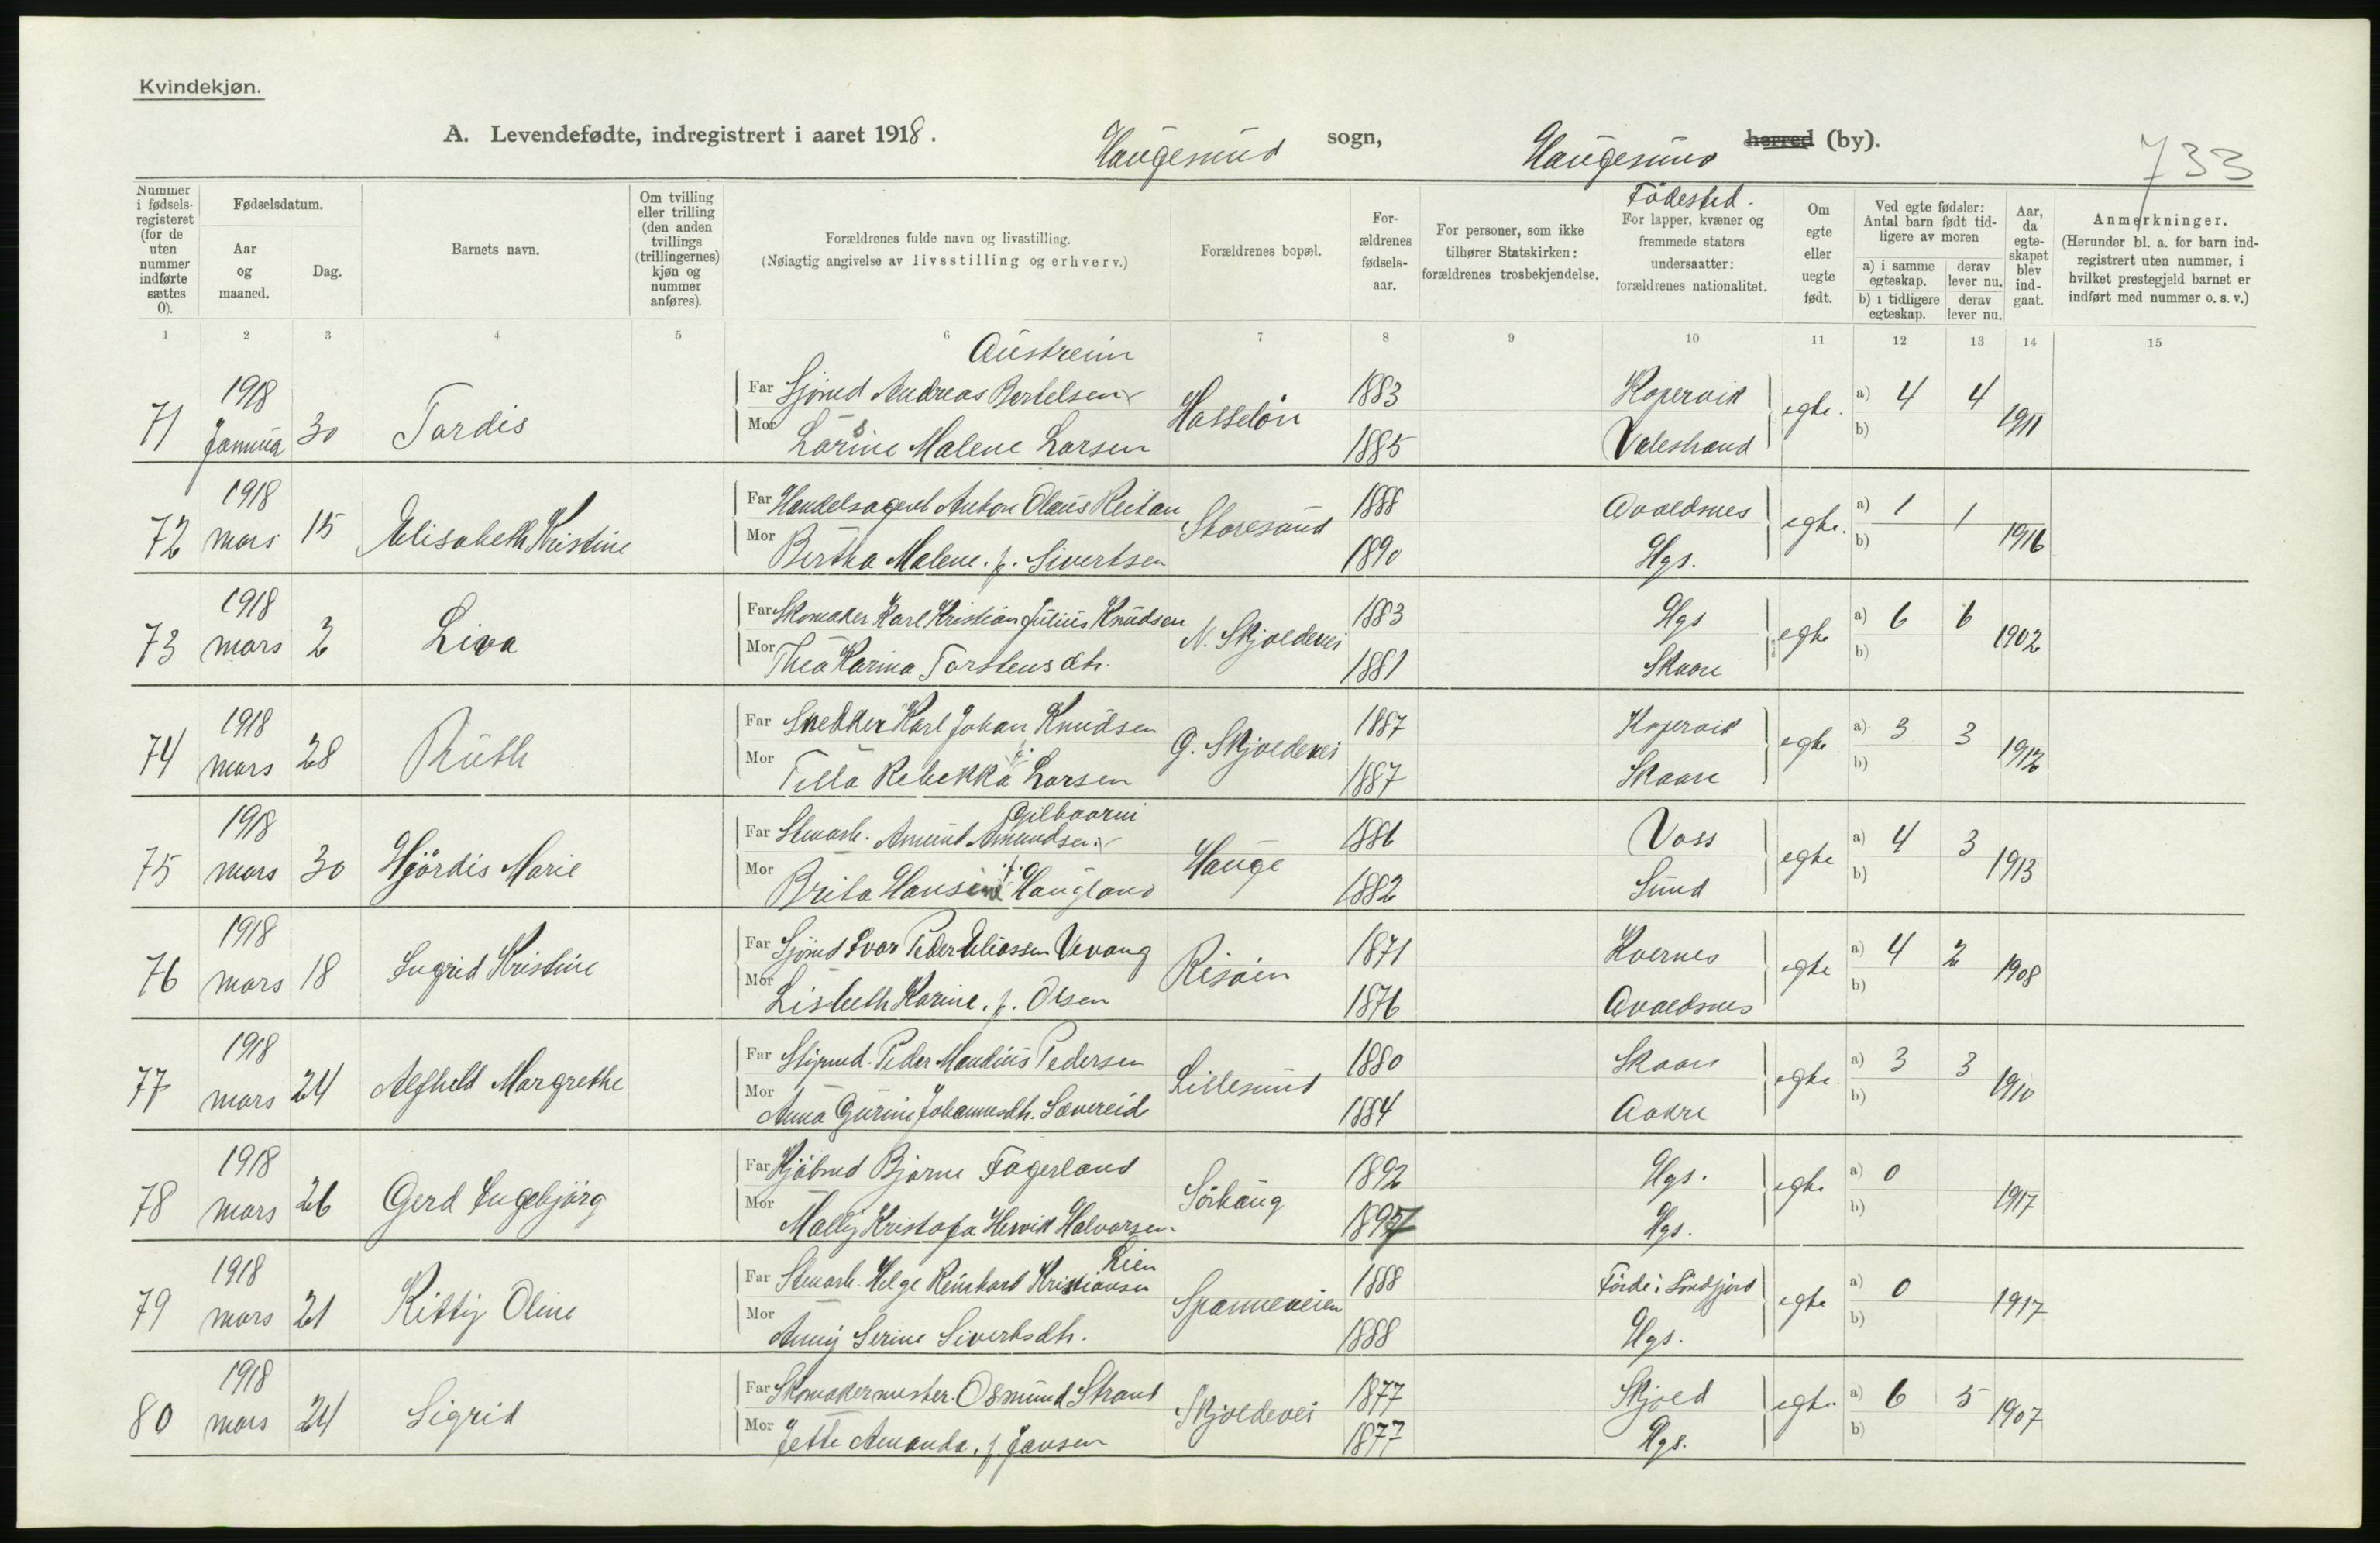 Kvindekjøn.
A. Levendefødte, indregistrert i aaret 1918.
Haugesund sogn, Haugesund herred (by).
733
Nummer i fødselsregisteret (for de uten nummer indførte sættes 0).
Fødselsdatum.
Aar og maaned.
Dag.
Barnets navn.
Om tvilling eller trilling (den anden tvillings (trillingernes) kjøn og nummer anføres).
Forældrenes fulde navn og livsstilling.
(Nøiagtig angivelse av livsstilling og erhverv.)
Forældrenes bopæl.
Forældrenes fødselsaar.
For personer, som ikke tilhører Statskirken: forældrenes trosbekjendelse.
Födested.
For lapper, kvæner og fremmede staters undersaatter: forældrenes nationalitet.
Om egte eller uegte født.
Ved egte fødsler: Antal barn født tidligere av moren
a) i samme egteskap. derav lever nu.
b) i tidligere egteskap. derav lever nu.
Aar, da egteskapet blev indgaat.
Anmerkninger.
(Herunder bl. a. for barn indregistrert uten nummer, i hvilket prestegjeld barnet er indført med nummer o. s. v.)
1 2 3 4 5 6 7 8 9 10 11 12 13 14 15
Austreim
71 1918 Januar 30 Tordis Far Sjömd Andreas Bertelsen Hasselön 1883 Kopervik egte. a) 4 4 1911
Mor Larsine Malene Larsen 1885 Valestrand b)
72 1918 mars 15 Elisabeth Kristine Far Handelsagent Anton Olaus Reitan Storesund 1888 Avaldsnes egte. a) 1 1 1916
Mor Bertha Malene. f. Sivertsen 1890 Hgs. b)
73 1918 mars 2 Liva Far Skomaker Karl Kristian Julius Knudsen N. Skjoldevei 1883 Hgs egte a) 6 6 1902
Mor Thea Karina Torstensdtr. 1881 Skaare b)
74 1918 mars 28 Ruth Far Snekker Karl Johan Knudsen G. Skjoldevei 1887 Kopervik egte a) 3 3 1912
Mor Tilla Rebekka f. Larsen 1887 Skaare b)
Gilbaarni
75 1918 mars 30 Hjördis Marie Far Stuearb. Amund Amundsen Hauge 1886 Voss egte a) 4 3 1913
Mor Brita Hansine f. Haugland 1882 Sund b)
76 1918 mars 18 Ingrid Kristine Far Sjömd Ivar Peder Eliassen Vevang Risöen 1871 Kvernes egte a) 4 2 1908
Mor Lisbeth Karine. f. Olsen 1876 Avaldsnes b)
77 1918 mars 24 Alfhild Margrethe Far Peder Mandius Pedersen Lillesund 1880 Skaare egte a) 3 3 1910
Mor Anna Gurine Johannesdtr. Sævereide 1884 Aakre b)
78 1918 mars 26 Gerd Ingebjörg Far Kjöbmd Bjarne Fagerland Sörhaug 1892 Hgs. egte a) 0 1917
Mor Mally Kristofa Halvorsen 1897 Hgs. b)
Lien
79 1918 mars 21 Kitty Oline Far Stuearb. Helge Reinhart Kristiansen Spanneveien 1888 Förde i Söndfjord egte a) 0 1917
Mor Anny Serine Sivertsdtr. 1888 Hgs. b)
80 1918 mars 24 Sigrid Far Skomakermester. Osmund Strand Skjoldevei 1877 Skjold egte a) 6 5 1907
Mor Jette Amanda. f. Jansen 1877 Hgs. b)